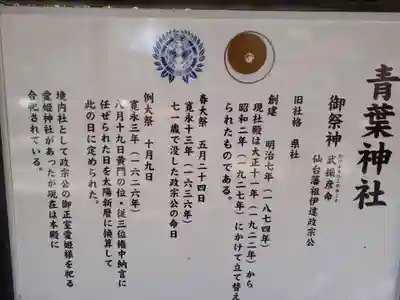 青葉神社
御祭神
武振彦命
仙台藩祖伊達政宗公
旧社格　県社
創建　明治七年（一八七四年）
現社殿は大正十一年（一九二二年）から
昭和二年（一九二七年）にかけて立て替え
られたものである。
春大祭　五月二十四日
寛永十三年（一六三六年）
七一歳で没した政宗公の命日
例大祭　十月九日
寛永三年（一六二六年）
八月十九日黄門の位・従三位権中納言に
任ぜられた日を太陽新暦に換算して
此の日に定められた。
境内社として政宗公の御正室愛姫様を祀る
愛姫神社があったが現在は本殿に
合祀されている。